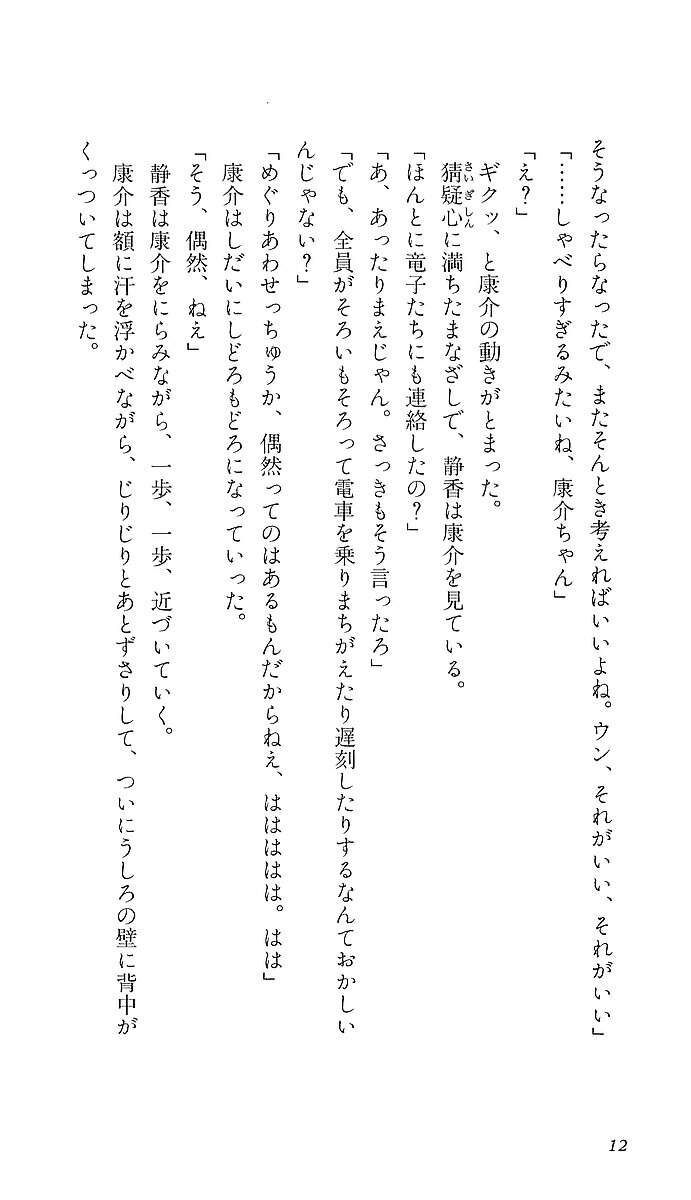 そうなったらなったで、またそんとき考えればいいよね。ウン、それがいい、それがいい」
「……しゃべりすぎるみたいね、康介ちゃん」
「え？」
ギクッ、と康介の動きがとまった。
猜疑心に満ちたまなざしで、静香は康介を見ている。
さいぎしん
「ほんとに竜子たちにも連絡したの？」
「あ、あったりまえじゃん。さっきもそう言ったろ」
「でも、全員がそろいもそろって電車を乗りまちがえたり遅刻したりするなんておかしい
んじゃない？」
「めぐりあわせっちゅうか、偶然ってのはあるもんだからねえ、はははは。はは」
康介はしだいにしどろもどろになっていった。
「そう、偶然、ねえ」
静香は康介をにらみながら、一歩、一歩、近づいていく。
康介は額に汗を浮かべながら、じりじりとあとずさりして、ついにうしろの壁に背中が
くっついてしまった。
12